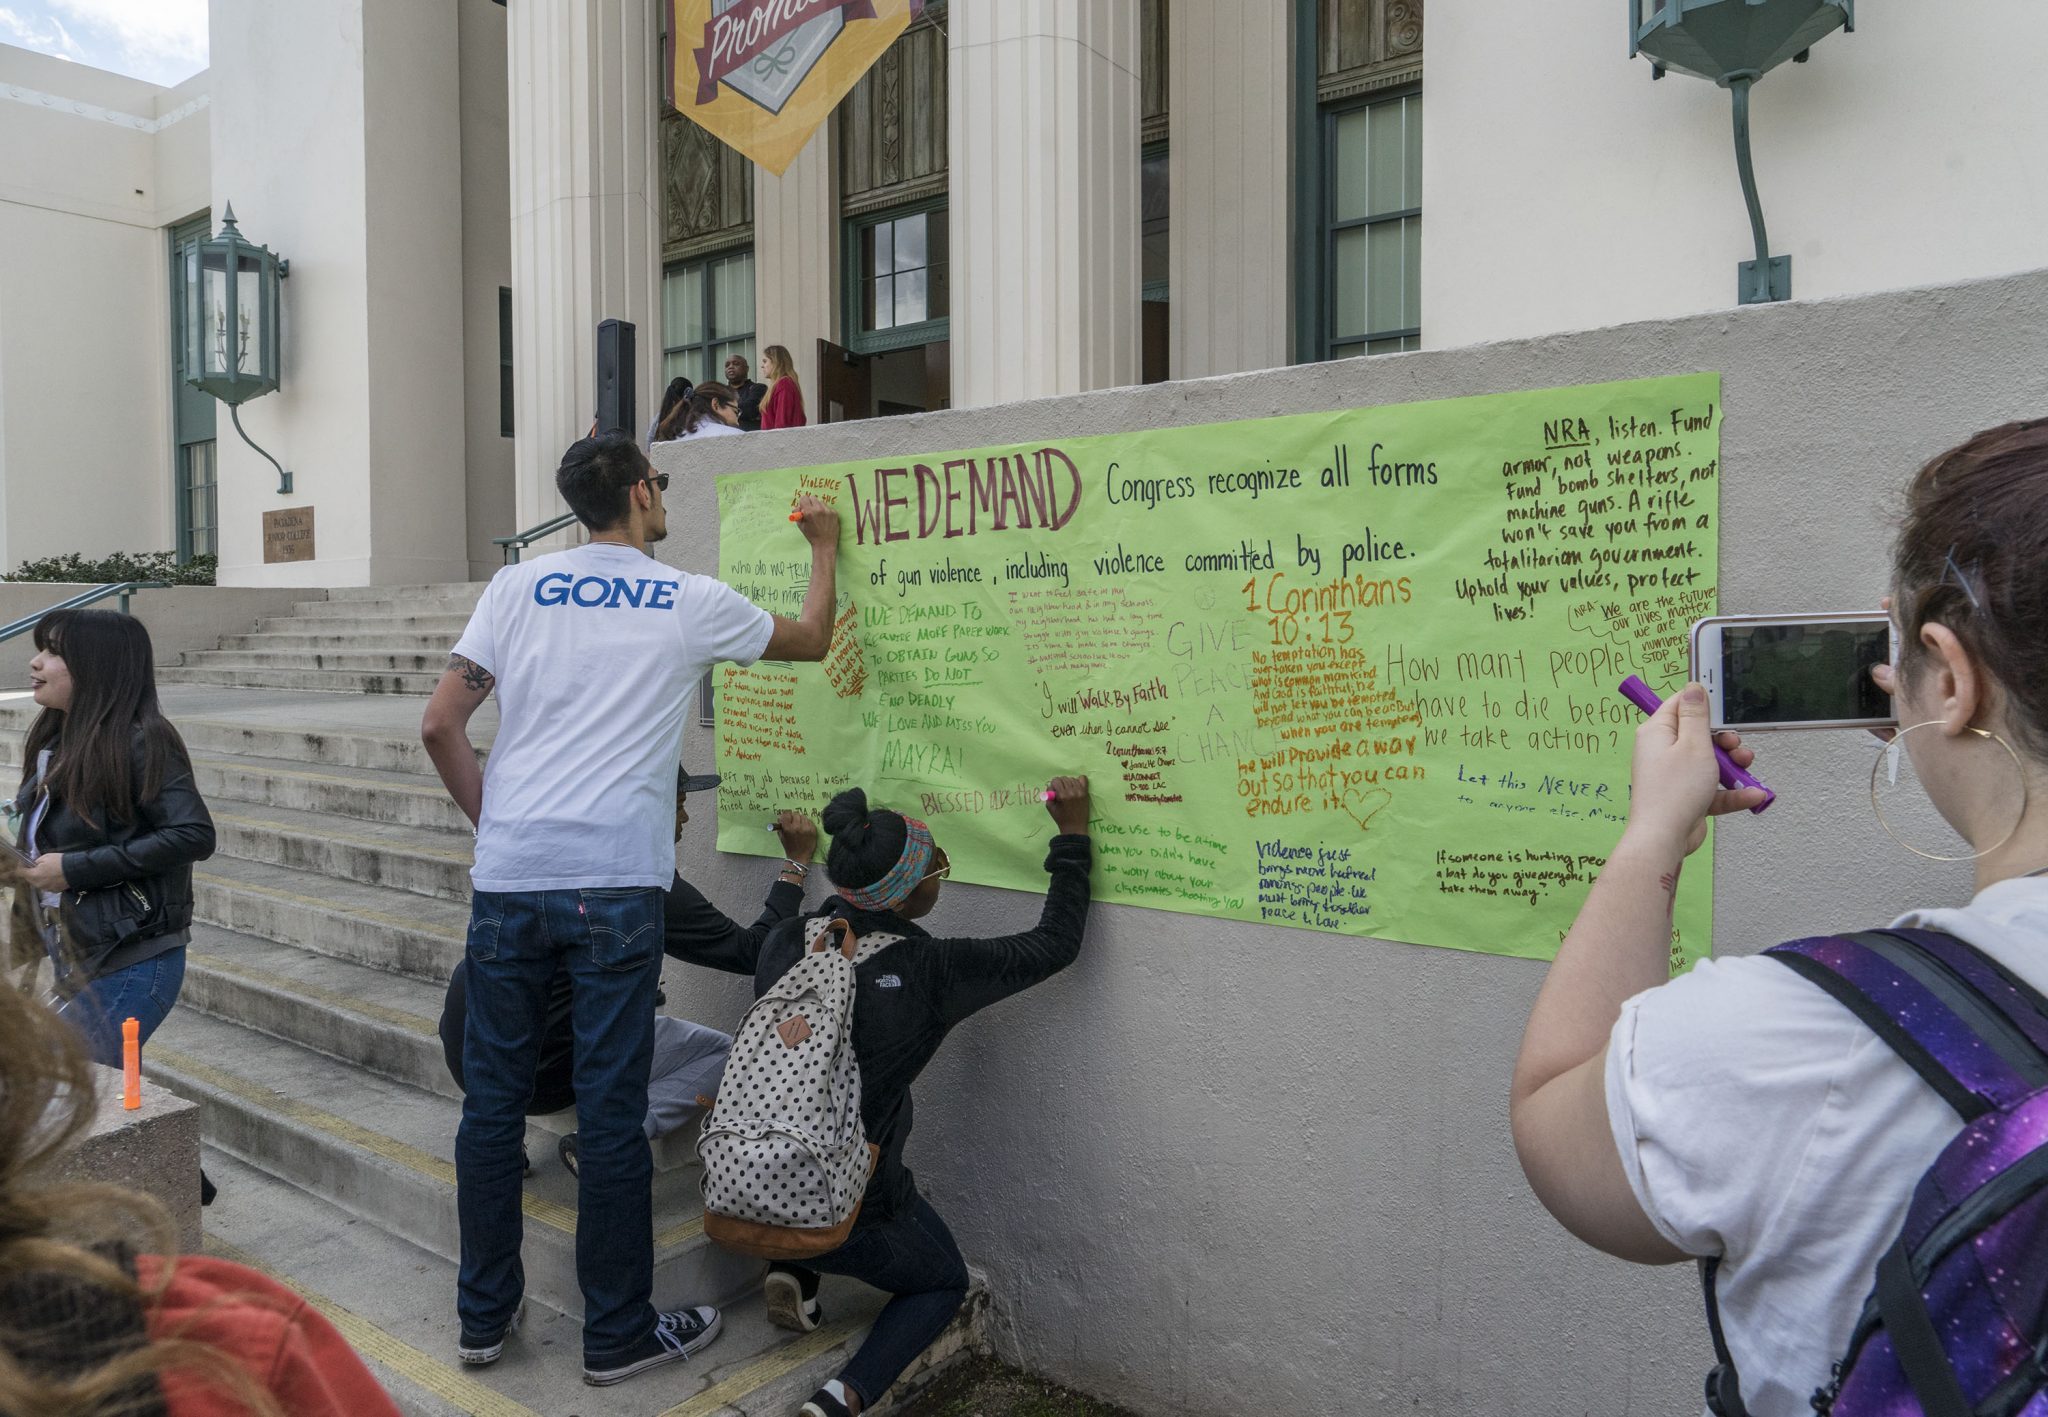 Promis
PASADENA
JUNIOR COLLEGE
1936
GONE
THE
NORTH
FACE
VIOLENCE
WE DEMAND
Congress recognize all forms
of gun violence, including violence committed by police.
who do we TRULY
Not all are victims
of those who use guns
for violence and other
criminal acts but we
are also victims of those
who use them as a figure
of Authority
left my job because I wasn't
protected and I watched my
friend die
WE DEMAND TO
REQUIRE MORE PAPER WORK
TO OBTAIN GUNS SO
PARTIES DO NOT
END DEADLY
WE LOVE AND MISS YOU
MAYRA!
BLESSED are the
I want to feel safe in my
my neighborhood has had a long time
struggle with gun violence & gangs.
"I will WALK BY FAITH
even when I cannot see"
2 Corinthians 5:7
GIVE
PEACE
A
CHANCE
There use to be a time
when you didn't have
to worry about your
classmates shooting you
1 Corinthians
10:13
No temptation has
overtaken you except
what is common mankind
And God is faithful; he
will not let you be tempted
beyond what you can bear. But
when you are tempted
he will Provide a way
out so that you can
endure it.
Violence just
brings more hatred
among people. we
must bring together
peace & love.
NRA, listen. Fund
armor, not weapons.
Fund bomb shelters, not
machine guns. A rifle
won't save you from a
totalitarian government.
Uphold your values, protect
lives!
NRA-
We are the future
our lives matter
we are not
numbers
STOP
US
How many people
have to die before
we take action?
Let this NEVER
to anyone else. Must
If someone is hurting
a bat do you give everyone
take them away?
life.